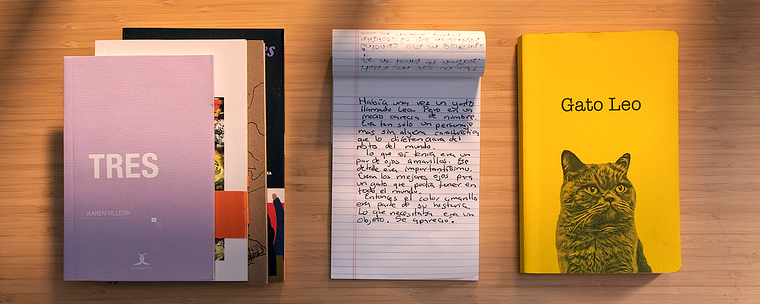 TRES
KAREN VILLEDA
Había una vez un gato
llamado Leo. Pero en un
inicio carecía de nombre.
Era tan sólo un personaje
mas sin alguna característica
que lo diferenciara del
resto del mundo.
Lo que sí tenía era un
par de ojos amarillos. Ese
detalle era importantísimo.
Eran los mejores ojos para
un gato que podía tener en
todo el mundo.
Entonces el color amarillo
era parte de su historia.
Lo que necesitaba era un
objeto. Se apareció.
Gato Leo